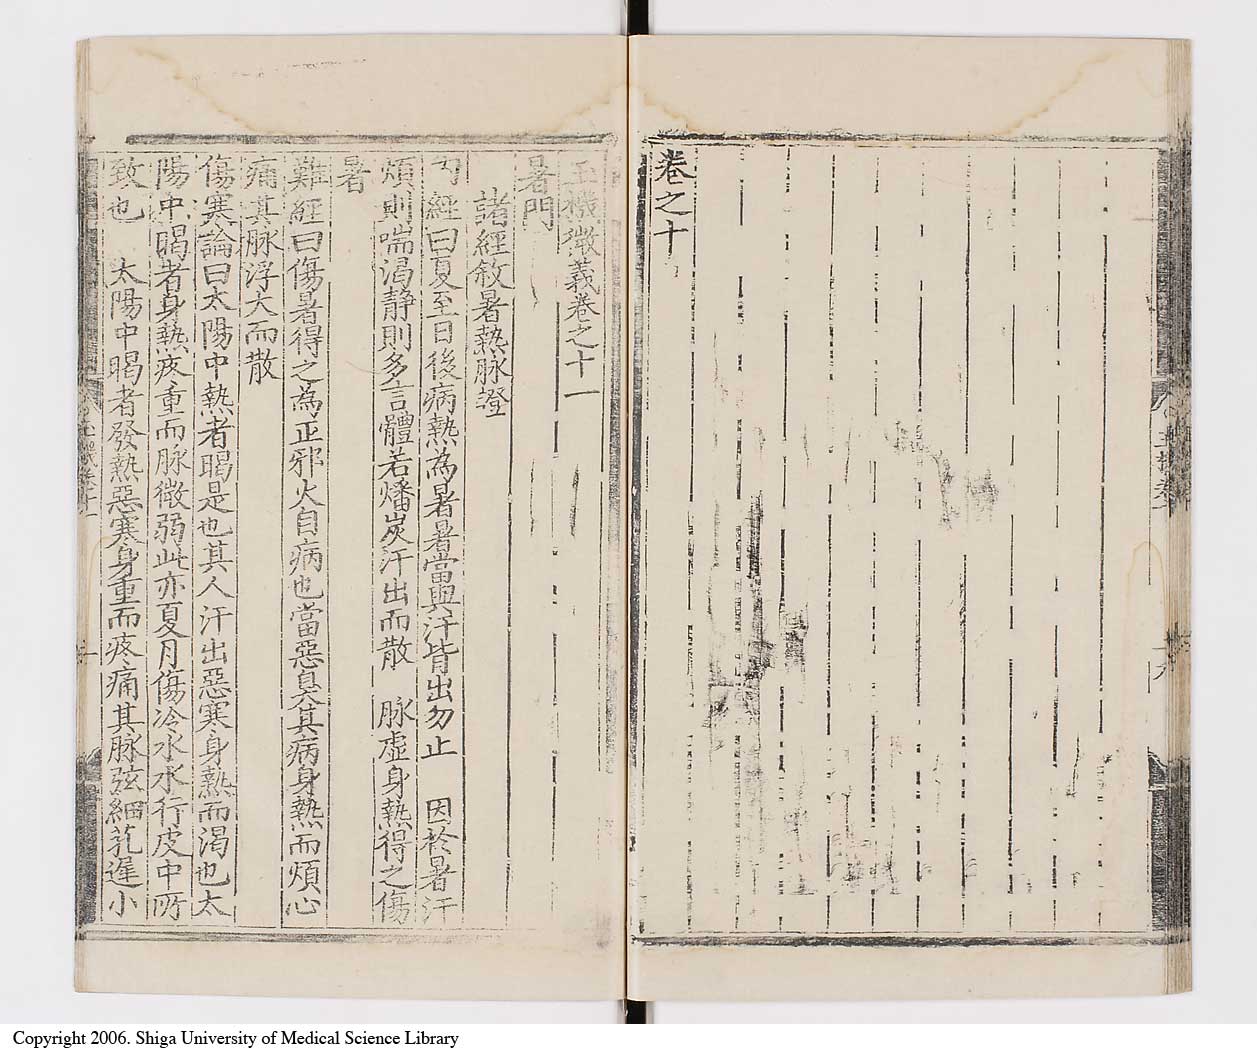 卷之十
玉機微義卷之十一
暑門
諸經敘暑熱脉證
內經曰夏至日後病熱為暑暑當與汗皆出勿止　因於暑汗
煩則喘渴靜則多言體若燔炭汗出而散　脉虛身熱得之傷
暑
難經曰傷暑得之為正邪火自病也當惡臭其病身熱而煩心
痛其脉浮大而散
傷寒論曰太陽中熱者暍是也其人汗出惡寒身熱而渴也太
陽中暍者身熱疼重而脉微弱此亦夏月傷冷水水行皮中所
致也　太陽中暍者發熱惡寒身重而疼痛其脉弦細芤遲小
Copyright 2006. Shiga University of Medical Science Library